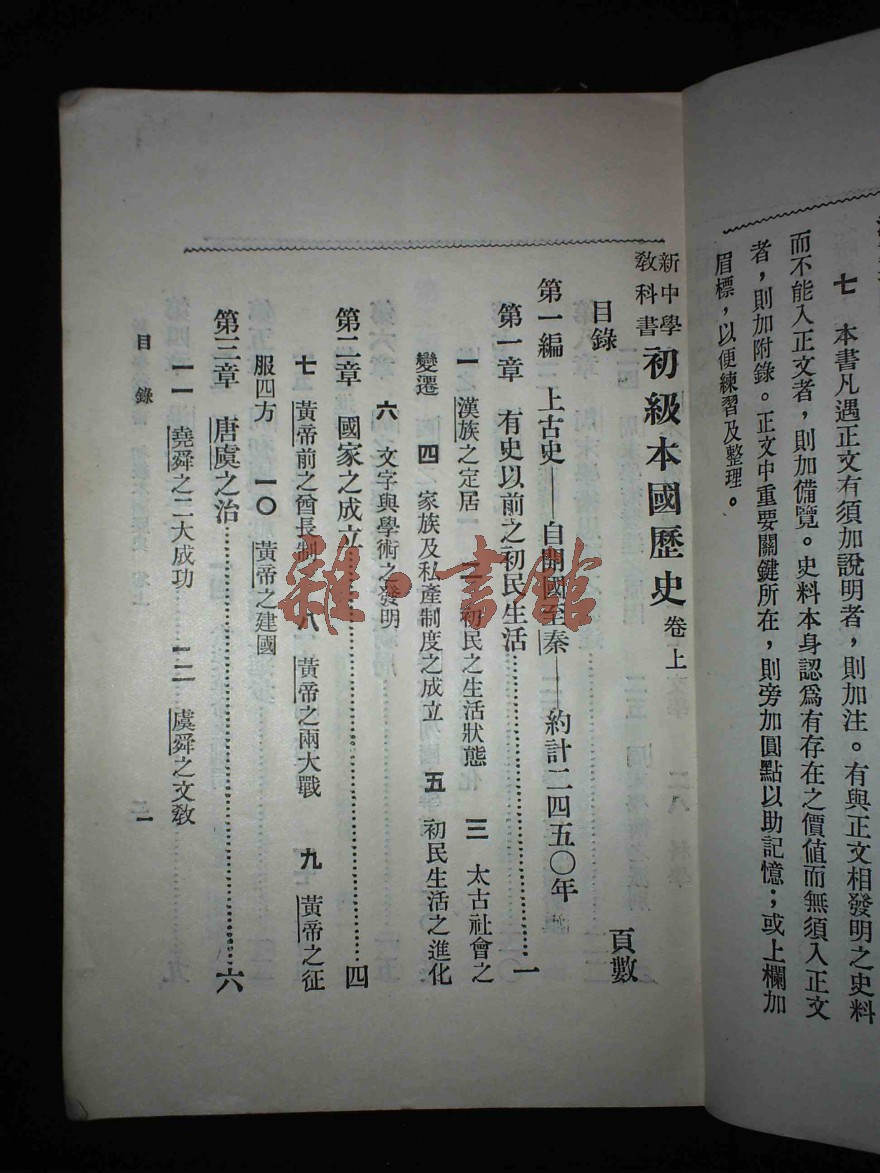 七　本書凡遇正文有須加說明者，則加注。有與正文相發明之史料
而不能入正文者，則加備覽。史料本身認爲有存在之價値而無須入正文
者，則加附錄。正文中重要關鍵所在，則旁加圓點以助記憶；或上欄加
眉標，以便練習及整理。
新中學教科書 初級本國歷史 卷上
目錄　頁數
第一編　上古史——自開國至秦——約計二四五〇年
第一章　有史以前之初民生活……一
一　漢族之定居　二　初民之生活狀態　三　太古社會之
變遷　四　家族及私產制度之成立　五　初民生活之進化
六　文字與學術之發明
第二章　國家之成立……四
七　黃帝前之酋長制　八　黃帝之兩大戰　九　黃帝之征
服四方　一〇　黃帝之建國
第三章　唐虞之治……六
一一　堯舜之二大成功　一二　虞舜之文教
目錄　一
雜·書館